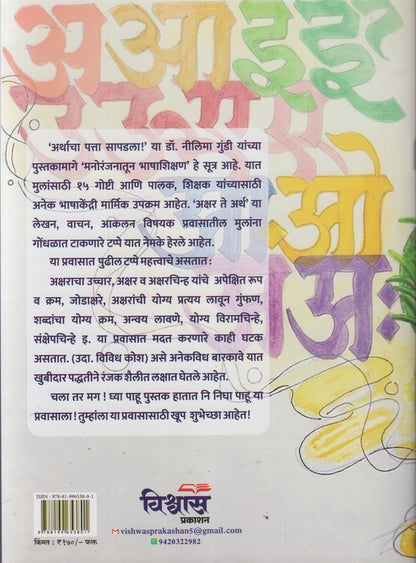 अ आ इ ई
ओ
अः
'अर्थाचा पत्ता सापडला!' या डॉ. नीलिमा गुंडी यांच्या
पुस्तकामागे 'मनोरंजनातून भाषाशिक्षण' हे सूत्र आहे. यात
मुलांसाठी १५ गोष्टी आणि पालक, शिक्षक यांच्यासाठी
अनेक भाषाकेंद्री मार्मिक उपक्रम आहेत. 'अक्षर ते अर्थ' या
लेखन, वाचन, आकलन विषयक प्रवासातील मुलांना
गोंधळात टाकणारे टप्पे यात नेमके हेरले आहेत.
या प्रवासात पुढील टप्पे महत्त्वाचे असतात :
अक्षराचा उच्चार, अक्षर व अक्षरचिन्ह यांचे अपेक्षित रूप
व क्रम, जोडाक्षरे, अक्षरांची योग्य प्रत्यय लावून गुंफण,
शब्दांचा योग्य क्रम, अन्वय लावणे, योग्य विरामचिन्हे,
संक्षेपचिन्हे इ. या प्रवासात मदत करणारे काही घटक
असतात. (उदा. विविध कोश) असे अनेकविध बारकावे यात
खुबीदार पद्धतीने रंजक शैलीत लक्षात घेतले आहेत.
चला तर मग! घ्या पाहू पुस्तक हातात नि निघा पाहू या
प्रवासाला! तुम्हांला या प्रवासासाठी खूप शुभेच्छा आहेत!
ISBN : 978-81-996538-0-1
9 788199 653801
किंमत : ₹ १७०/- फक्त
विश्वास
प्रकाशन
vishwasprakashan5@gmail.com
9420322982